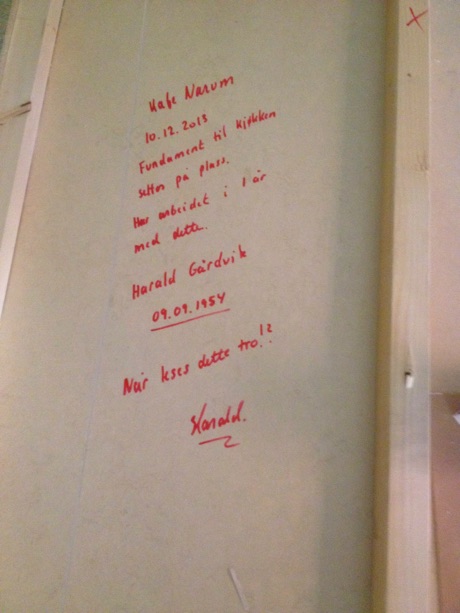 Kafe Narum
10.12.2013
Fundament til kjøkken
settes på plass.
Har arbeidet i 1 år
med dette.
Harald Gårdvik
09.09.1954
Når leses dette tro!?
Harald.
X